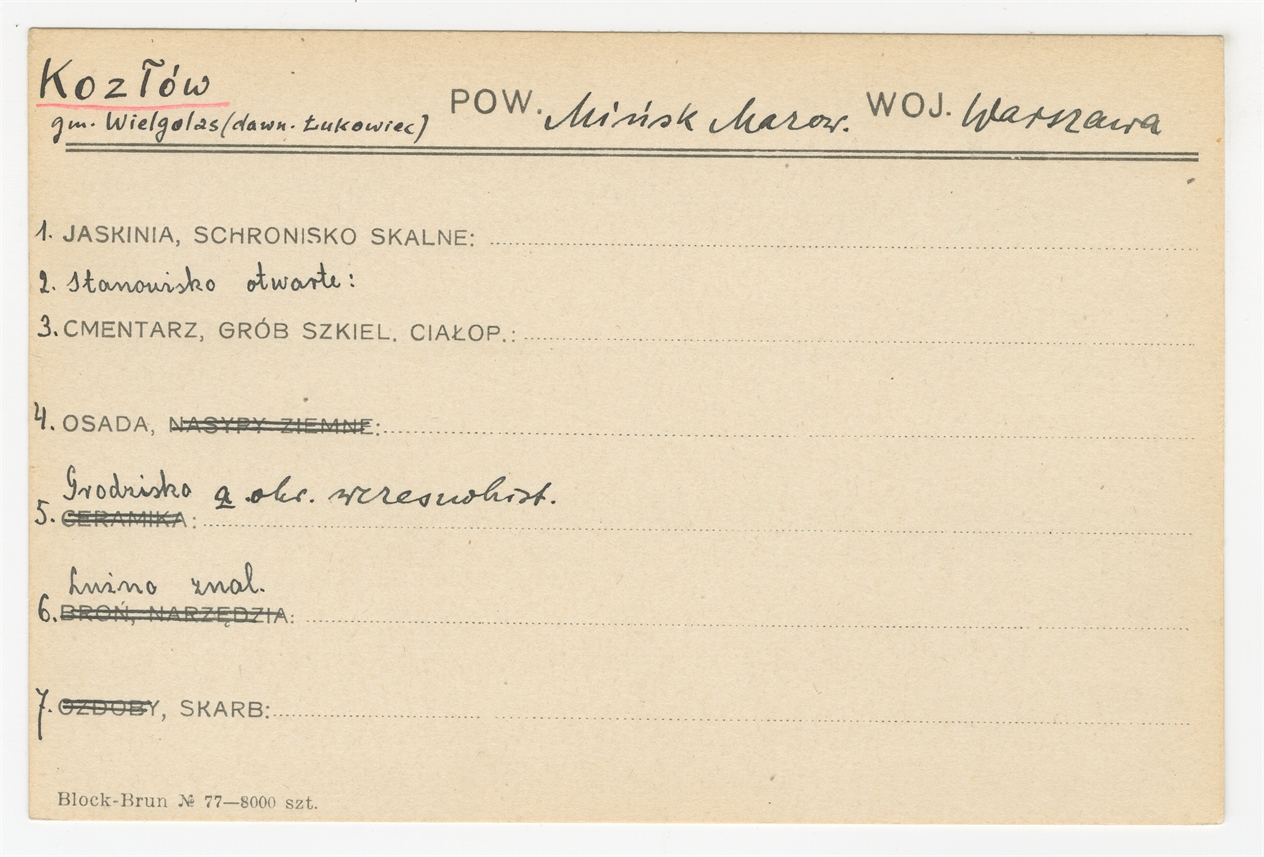 Kozłów
gm. Wielgolas (dawn. Łukowiec) POW. Mińsk Mazow. WOJ. Warszawa
1. JASKINIA, SCHRONISKO SKALNE:
2. Stanowisko otwarte:
3. CMENTARZ, GRÓB SZKIEL. CIAŁOP.:
4. OSADA, NASYPY ZIEMNE:
Grodzisko a. okr. wczesnohist.
5. CERAMIKA:
Luźno znal.
6. BROŃ, NARZĘDZIA:
7. OZDOBY, SKARB:
Block-Brun № 77—8000 szt.